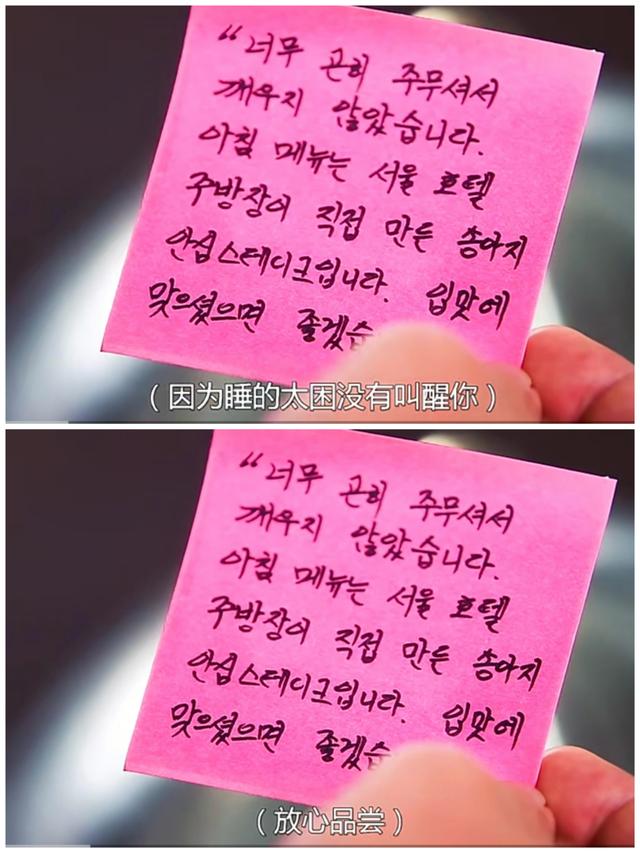 “너무 곤히 주무셔서
깨우지 않았습니다.
아침 메뉴는 서울 호텔
주방장이 직접 만든 송아지
안심스테이크입니다. 입맛에
맞으셨으면 좋겠습
（因为睡的太困没有叫醒你）
“너무 곤히 주무셔서
깨우지 않았습니다.
아침 메뉴는 서울 호텔
주방장이 직접 만든 송아지
안심스테이크입니다. 입맛에
맞으셨으면 좋겠습
（放心品尝）